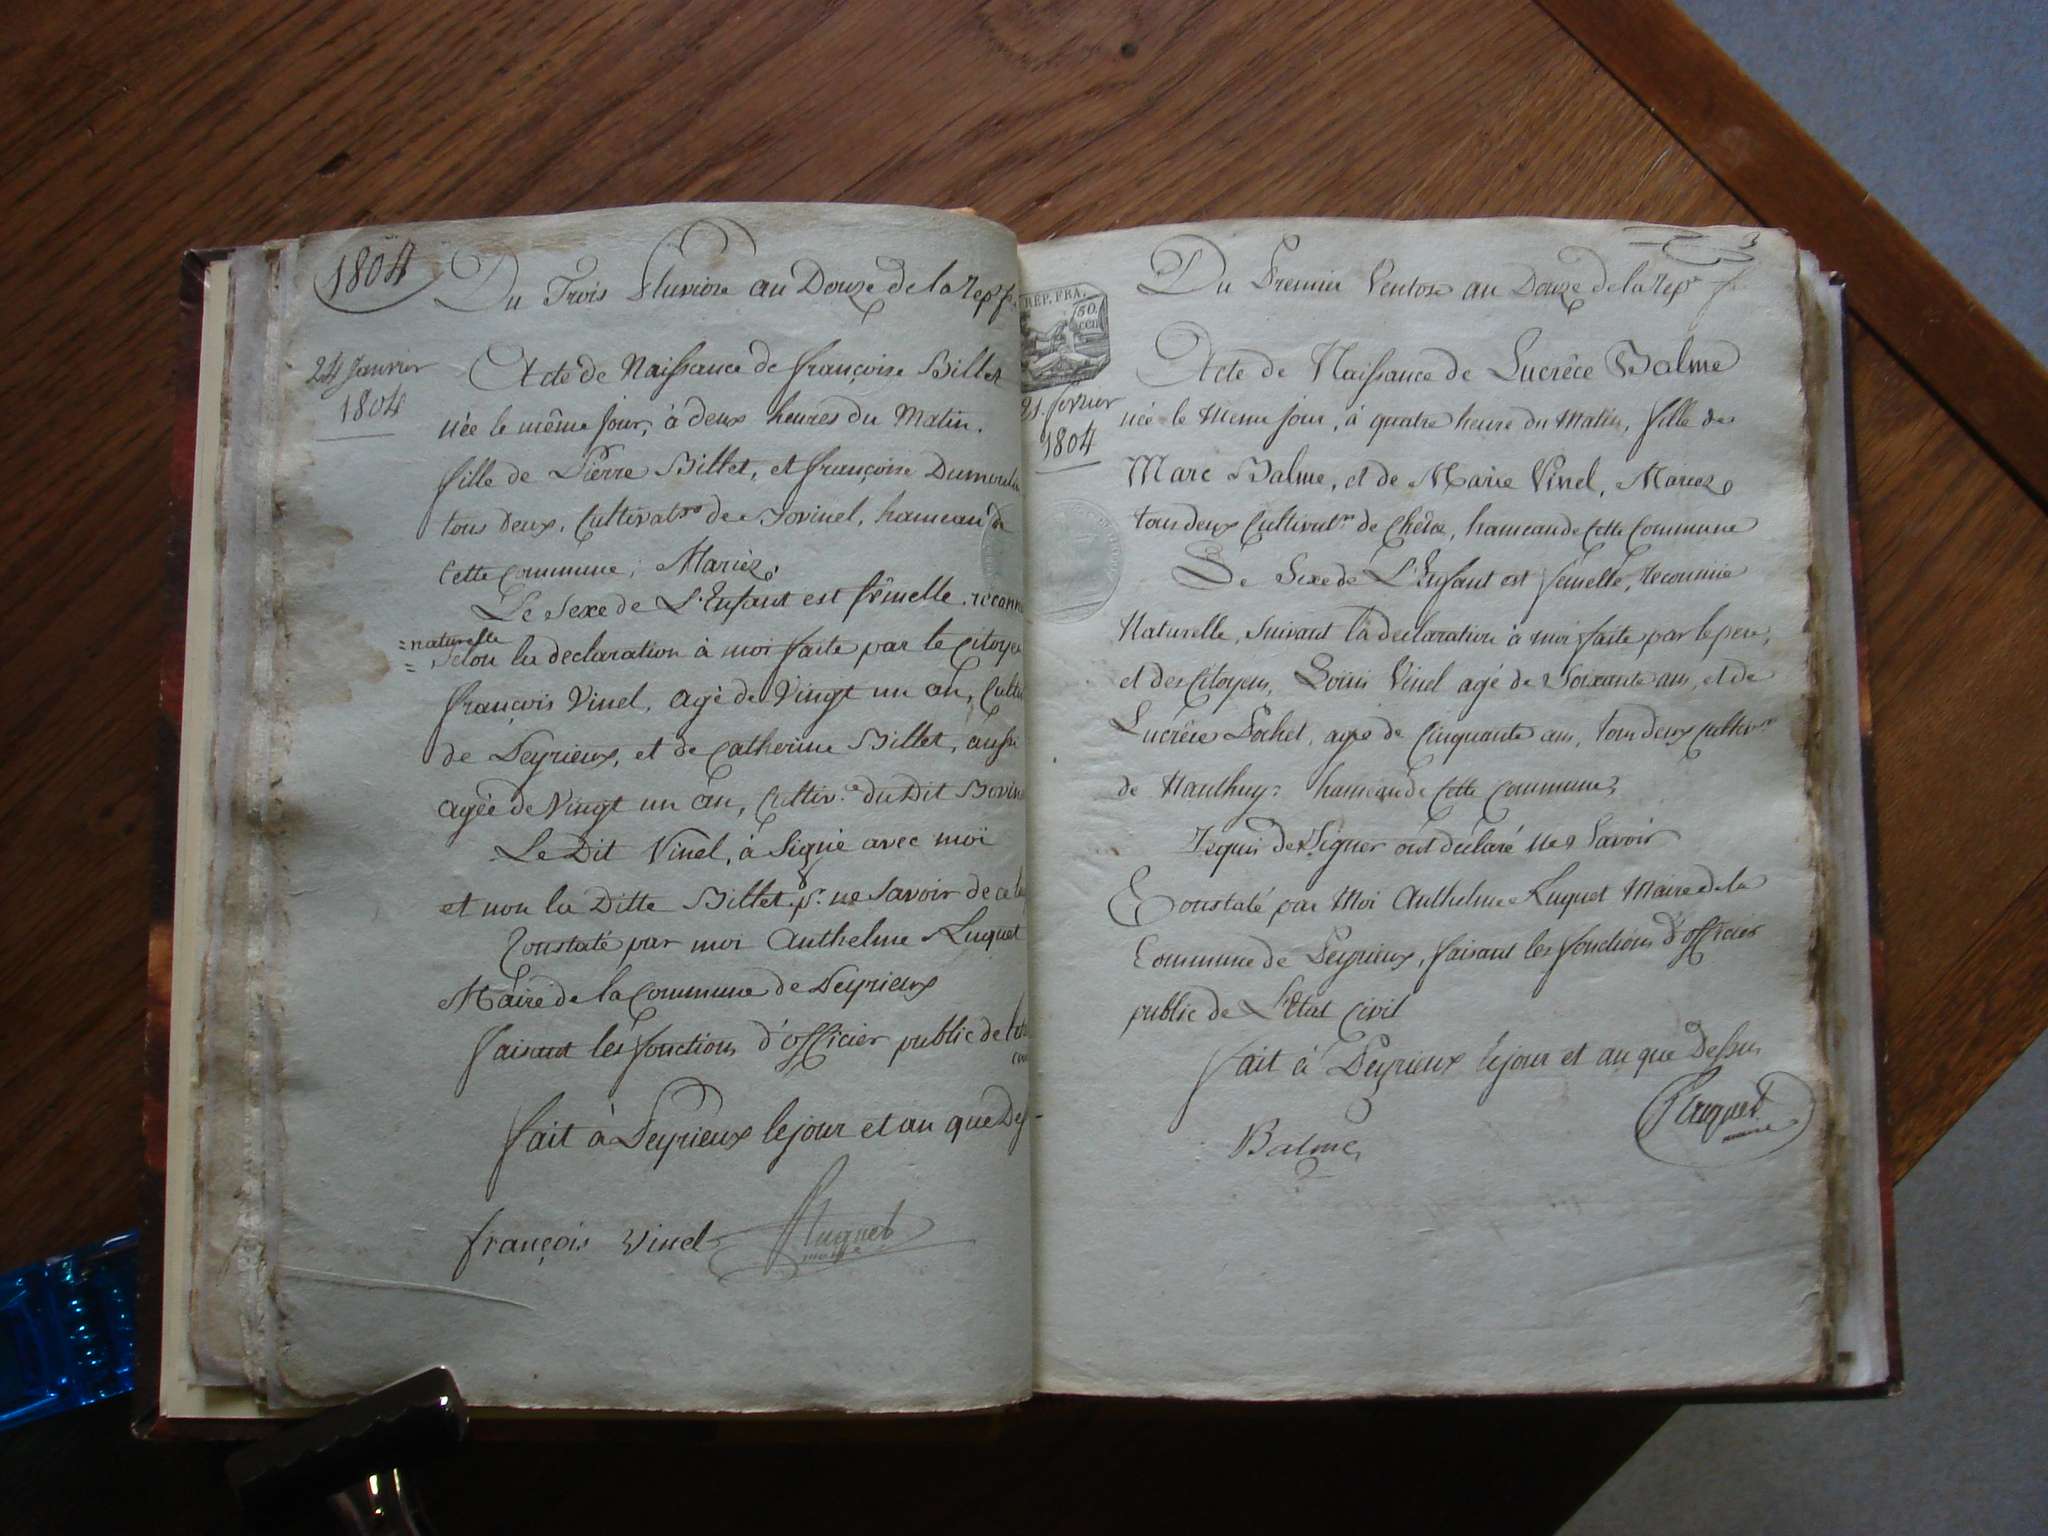 1804
Du Trois Pluviose an Douze de la Rep.
24 Janvier
1804
Acte de Naissance de françoise Billet
née le même jour, à deux heures du Matin.
fille de Pierre Billet, et françoise
tous deux, Cultivat.rs de Bovinel, hameau de
Cette Commune, Mariéz.
Le Sexe de L'Enfant est fêmelle,
=naturelle
= Selon la declaration à moi faite par le Citoyen
françois Vinel, agé de Vingt un an,
de Peyrieux, et de Catherine Billet, aussi
agée de Vingt un an, Cultiv.e du Dit
Le Dit Vinel, à Signé avec moi
et non la Ditte Billet p.r ne Savoir de ce
Constaté par moi Anthelme Luquet
Maire de la Commune de Peyrieux
faisant les fonctions d'officier public de
fait à Peyrieux le jour et an que
françois Vinel Luquet
maire
3
Du Premier Ventose an Douze de la Rep.e f
REP. FRA.
50.
cen
21. fevrier
1804
Acte de Naissance de Lucrêce Balme
née le Meme jour, à quatre heure du Matin, fille de
Marc Balme, et de Marie Vinel, Mariez,
tous deux Cultivat.rs de hameau de Cette Commune
Le Sexe de L'Enfant est femelle, reconnue
Naturelle, Suivant la declaration à moi faite par le pere,
et des Citoyens, Louis Vinel agé de Soixante ans, et de
Lucrêce Pochet, agée de Cinquante ans, tous deux Cultiv.rs
de hameau de Cette Commune,
requis de Signer ont déclaré ne Savoir
Constaté par Moi Anthelme Luquet Maire de la
Commune de Peyrieux, faisant les fonctions d'officier
public de L'Etat Civil
fait à Peyrieux le jour et an que Dessus
Luquet
maire
Balme